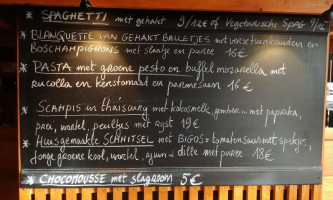 * SPAGHETTI met gehakt 9/12€ of Vegetarische SPAG 9/12€
* BLANQUETTE VAN GEHAKT BALLETJES met verse tuinkruiden en
BOSCHAMPIGNONS met slaatje en puree 16€
* PASTA met groene pesto en buffel mozarella met
rucolla en kerstomaat en parmesaan 16€
* SCAMPIS in thaiscurry met kokosmelk, gember... met paprika,
prei, wortel, peultjes met rijst 19€
* Huisgemaakte SCHNITSEL met BIGOS = tomatensaus met spekjes,
jonge groene kool, wortel, ajuin + dille met puree 18€
* CHOCOMOUSSE met slagroom 5€